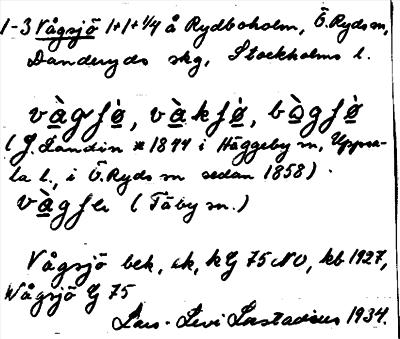 1-3 Vågsjö 1+1+1/4 å Rydboholm, Ö. Ryds m,
Danderyds skg, Stockholms l.
vàgʃø̀, vàkʃø̀, bògʃø̀
(J. Landin *1844 i Häggeby m, Uppsa-
la l., i Ö. Ryds m sedan 1858).
vàgʃe (Täby m.)
Vågsjö bek, ak, kG 75 NO, kb 1927,
Wågsjö G 75
Lars-Levi Læstadius 1934.